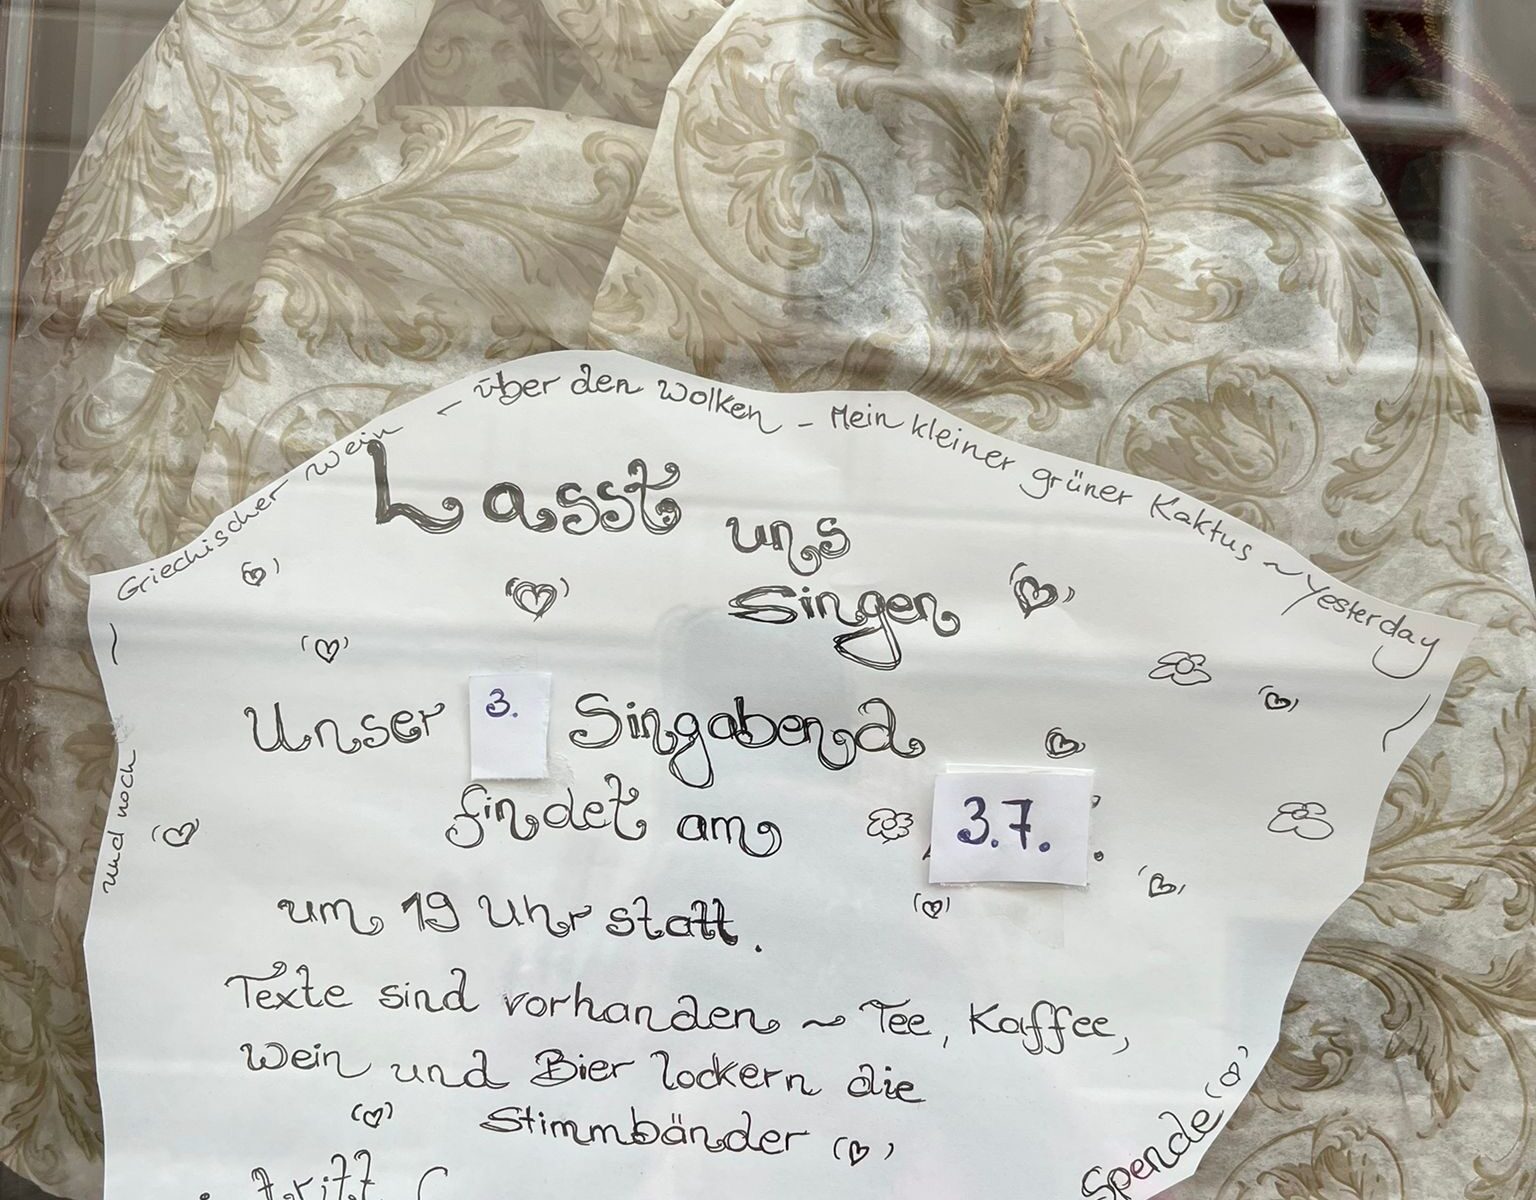 Griechischer Wein – über den Wolken – Mein kleiner grüner Kaktus ~ Yesterday
Lasst uns
Singen
Unser 3. Singabend
findet am 3.7.
um 19 Uhr statt.
Texte sind vorhanden ~ Tee, Kaffee,
Wein und Bier lockern die
Stimmbänder
Spende
und noch